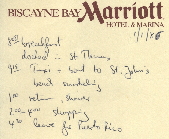 BISCAYNE BAY Marriott
HOTEL & MARINA
breakfast
docked in St Thomas
Taxi + boat to St. John's
boat snorkeling
1:00 return, shower
shopping
leave for Puerto Rico